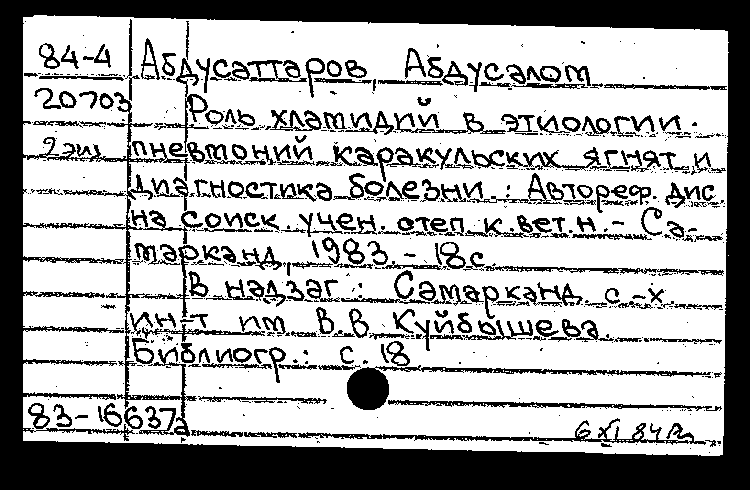 84-4 Абдусаттаров, Абдусалом
20703 Роль хламидий в этиологии
2 экз пневмоний каракульских ягнят и
диагностика болезни.: Автореф. дис.
на соиск. учен. степ. к.вет.н. - Са-
марканд, 1983. - 18с.
В надзаг.: Самарканд. с.-х.
ин-т им В.В. Куйбышева.
Библиогр.: с. 18
83-16637а
6 XI 84